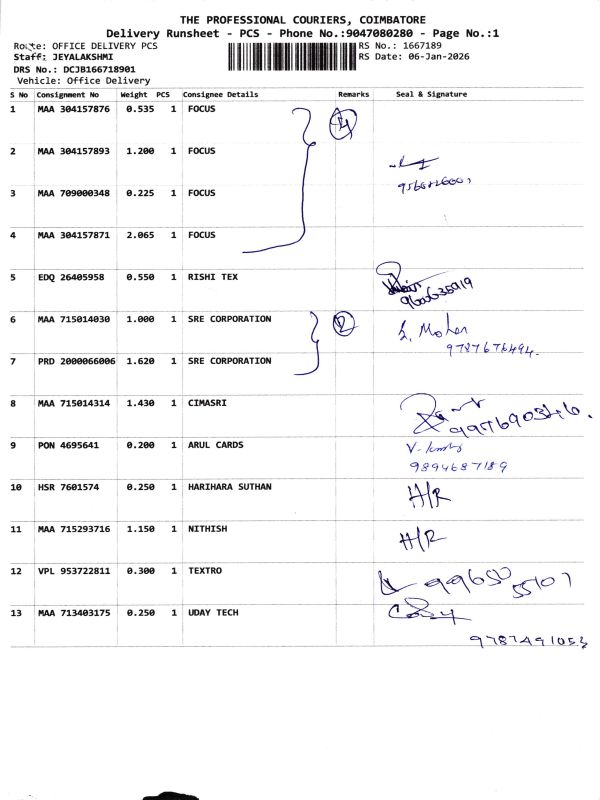 THE PROFESSIONAL COURIERS, COIMBATORE
Delivery Runsheet - PCS - Phone No.:9047080280 - Page No.:1
Route: OFFICE DELIVERY PCS RS No.: 1667189
Staff: JEYALAKSHMI RS Date: 06-Jan-2026
DRS No.: DCJB166718901
Vehicle: Office Delivery
S No Consignment No Weight PCS Consignee Details Remarks Seal & Signature
1 MAA 304157876 0.535 1 FOCUS 4
2 MAA 304157893 1.200 1 FOCUS
3 MAA 709000348 0.225 1 FOCUS
4 MAA 304157871 2.065 1 FOCUS
5 EDQ 26405958 0.550 1 RISHI TEX
6 MAA 715014030 1.000 1 SRE CORPORATION 2 S. Mohan
9787676494.
7 PRD 2000066006 1.620 1 SRE CORPORATION
8 MAA 715014314 1.430 1 CIMASRI
997690346.
9 PON 4695641 0.200 1 ARUL CARDS
9894687189
10 HSR 7601574 0.250 1 HARIHARA SUTHAN H/R
11 MAA 715293716 1.150 1 NITHISH H/R
12 VPL 953722811 0.300 1 TEXTRO 99650
55107
13 MAA 713403175 0.250 1 UDAY TECH
9787491053